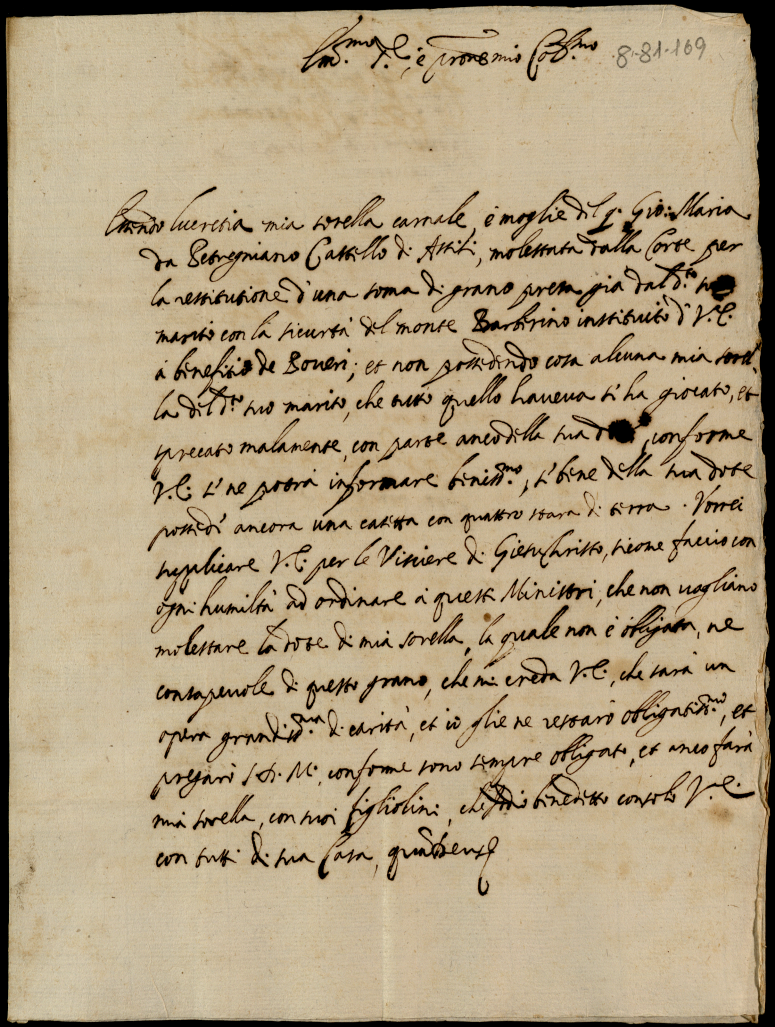 Ill.mo S.r, e pron mio Col.mo 8-81-169
Essendo lucretia mia sorella carnale, e moglie del q. Gio: Maria
da Petregniano Castello di Assisi, molestata dalla Corte per
la restitutione d'una soma di grano presa già dal d.to suo
marito con la sicurtà del monte Barberino instituito d' V.E.
à benefitio de Poveri; et non possedendo cosa alcuna mia sorel
la del d.to suo marito, che tutto quello haveva s'i ha giocato, et
sprecato malamente, con parte anco della sua dote, conforme
V.E. s'ne potrà informare beniss.mo, s'bene della sua dote
possedi ancora una casetta con quattro stara di terra. Vorrei
supplicare V.E. per le Viscere di Giesu Christo, sicome faccio con
ogni humiltà ad ordinare à questi Ministri, che non vogliano
molestare la dote di mia sorella, la quale non è obligata, ne
consapevole di questo grano, che mi creda V.E., che sarà un
opera grandiss.ma di carità, et io glie ne restarò obligatiss.mo, et
pregarò S.D.M., conforme sono sempre obligato, et anco farà
mia sorella, con suoi figliolini, che Idio benedetto consoli V.E.
con tutti di sua Casa,